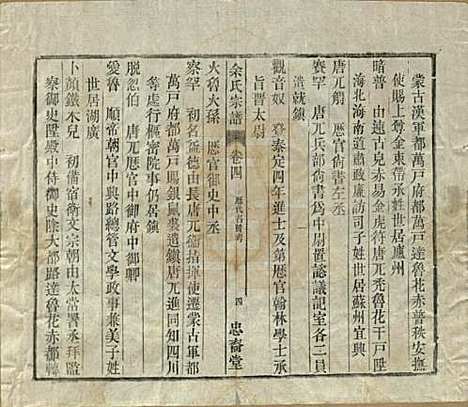 蒙古漢軍都萬戶府都萬戶達魯花赤普秩安撫
使賜上尊金束帶承姓世居廬州
暗普 由速古兒赤易金虎符唐兀禿魯花千戶陞
海北海南道肅政廉訪司子姓世居蘇州宜興
唐兀觭 歷官尚書左丞
賽罕 唐兀兵部尚書為中尉置諮議記室各二員
遣就鎮
觀音奴 登泰定四年進士及第歷官翰林學士承
旨晉太尉
余氏宗譜 卷四 歷代 四 忠裔堂
火魯火孫 歷官御史中丞
察罕 初名益德由長唐兀指揮使遷蒙古軍都
萬戶府都萬戶賜銀鳳裘遣鎮唐兀進同知四川
等處行樞密院事仍居鎮
脫忽伯 唐兀歷官中御府中御卿
愛魯 順帝朝官中興路總管文學政事兼美子姓
世居湖廣
卜顏鐵木兒 初備宿衛文宗朝由太常署丞拜監
察御史陞殿中侍御史除大都路達魯花赤都轉